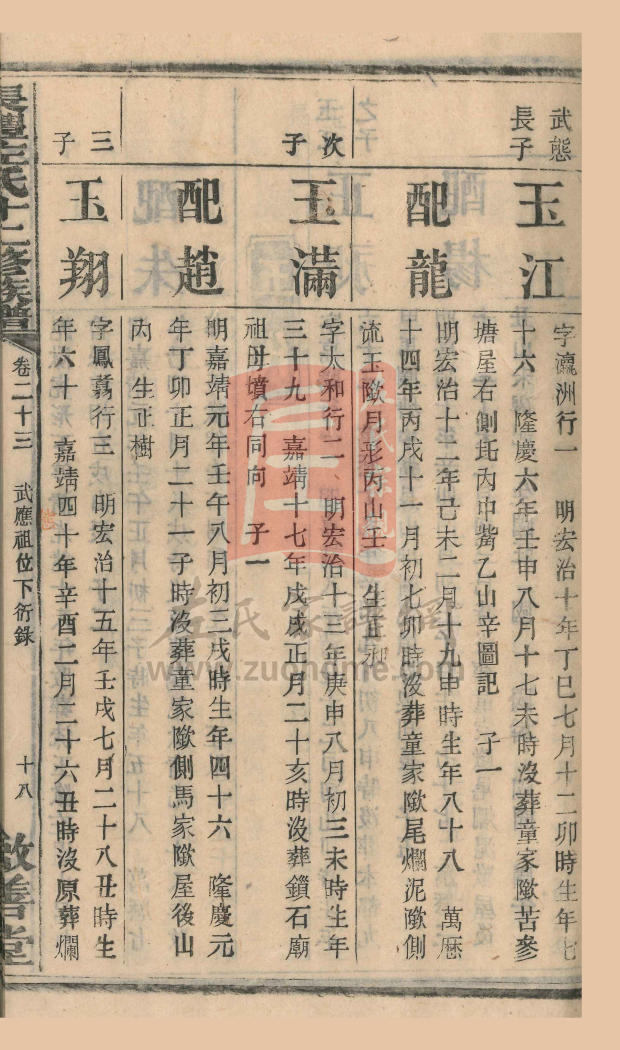 武態
長子
玉江
字瀛洲行一　明宏治十年丁巳七月十二卯時生年七
十六　隆慶六年壬申八月十七未時沒葬童家𡑞苦參
塘屋右側𡉏丙中嘴乙山辛圖記　子一
配龍
明宏治十二年己未二月十九申時生年八十八　萬歷
十四年丙戌十一月初七卯時沒葬童家𡑞尾爛泥𡑞側
流玉𡑞月形丙山壬　生正
次子
玉滿
字太和行二　明宏治十三年庚申八月初三未時生年
三十九　嘉靖十七年戊戌正月二十亥時沒葬鎖石廟
祖母墳右同向　子一
配趙
明嘉靖元年壬午八月初三戌時生年四十六　隆慶元
年丁卯正月二十一子時沒葬童家𡑞側馬家𡑞屋後山
內　生正樹
三子
玉翔
字鳳翥行三　明宏治十五年壬戌七月二十八丑時生
年六十　嘉靖四十年辛酉二月二十六丑時沒原葬爛
長豐左氏十二修族譜
卷二十三　武應祖位下衍錄
十八
敦善堂
左氏家譜網
www.zuohome.com